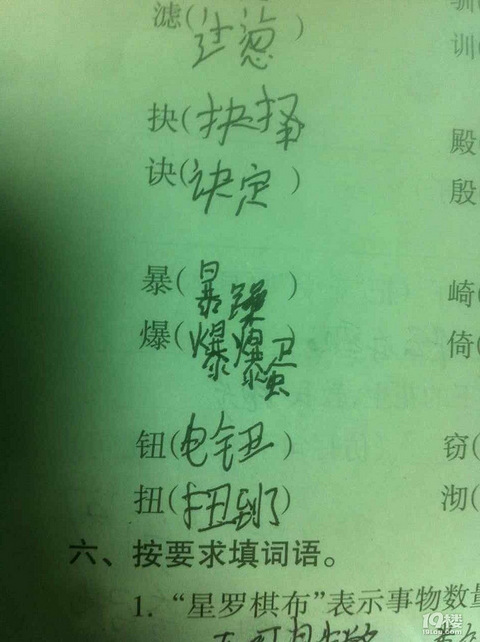 滤(过滤)
驯(
训(
抉(抉择
诀(诀定)
殿(
殷(
暴(暴躁)
爆(爆爆蛋)
崎(
倚(
钮(电钮)
扭(扭到了)
窃(
沏(
六、按要求填词语。
1. “星罗棋布”表示事物数量
19楼
19lou.com